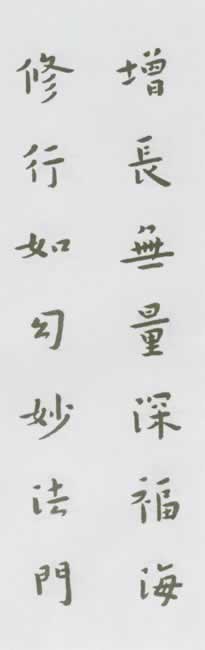 增長無量深福海
修行如幻妙法門